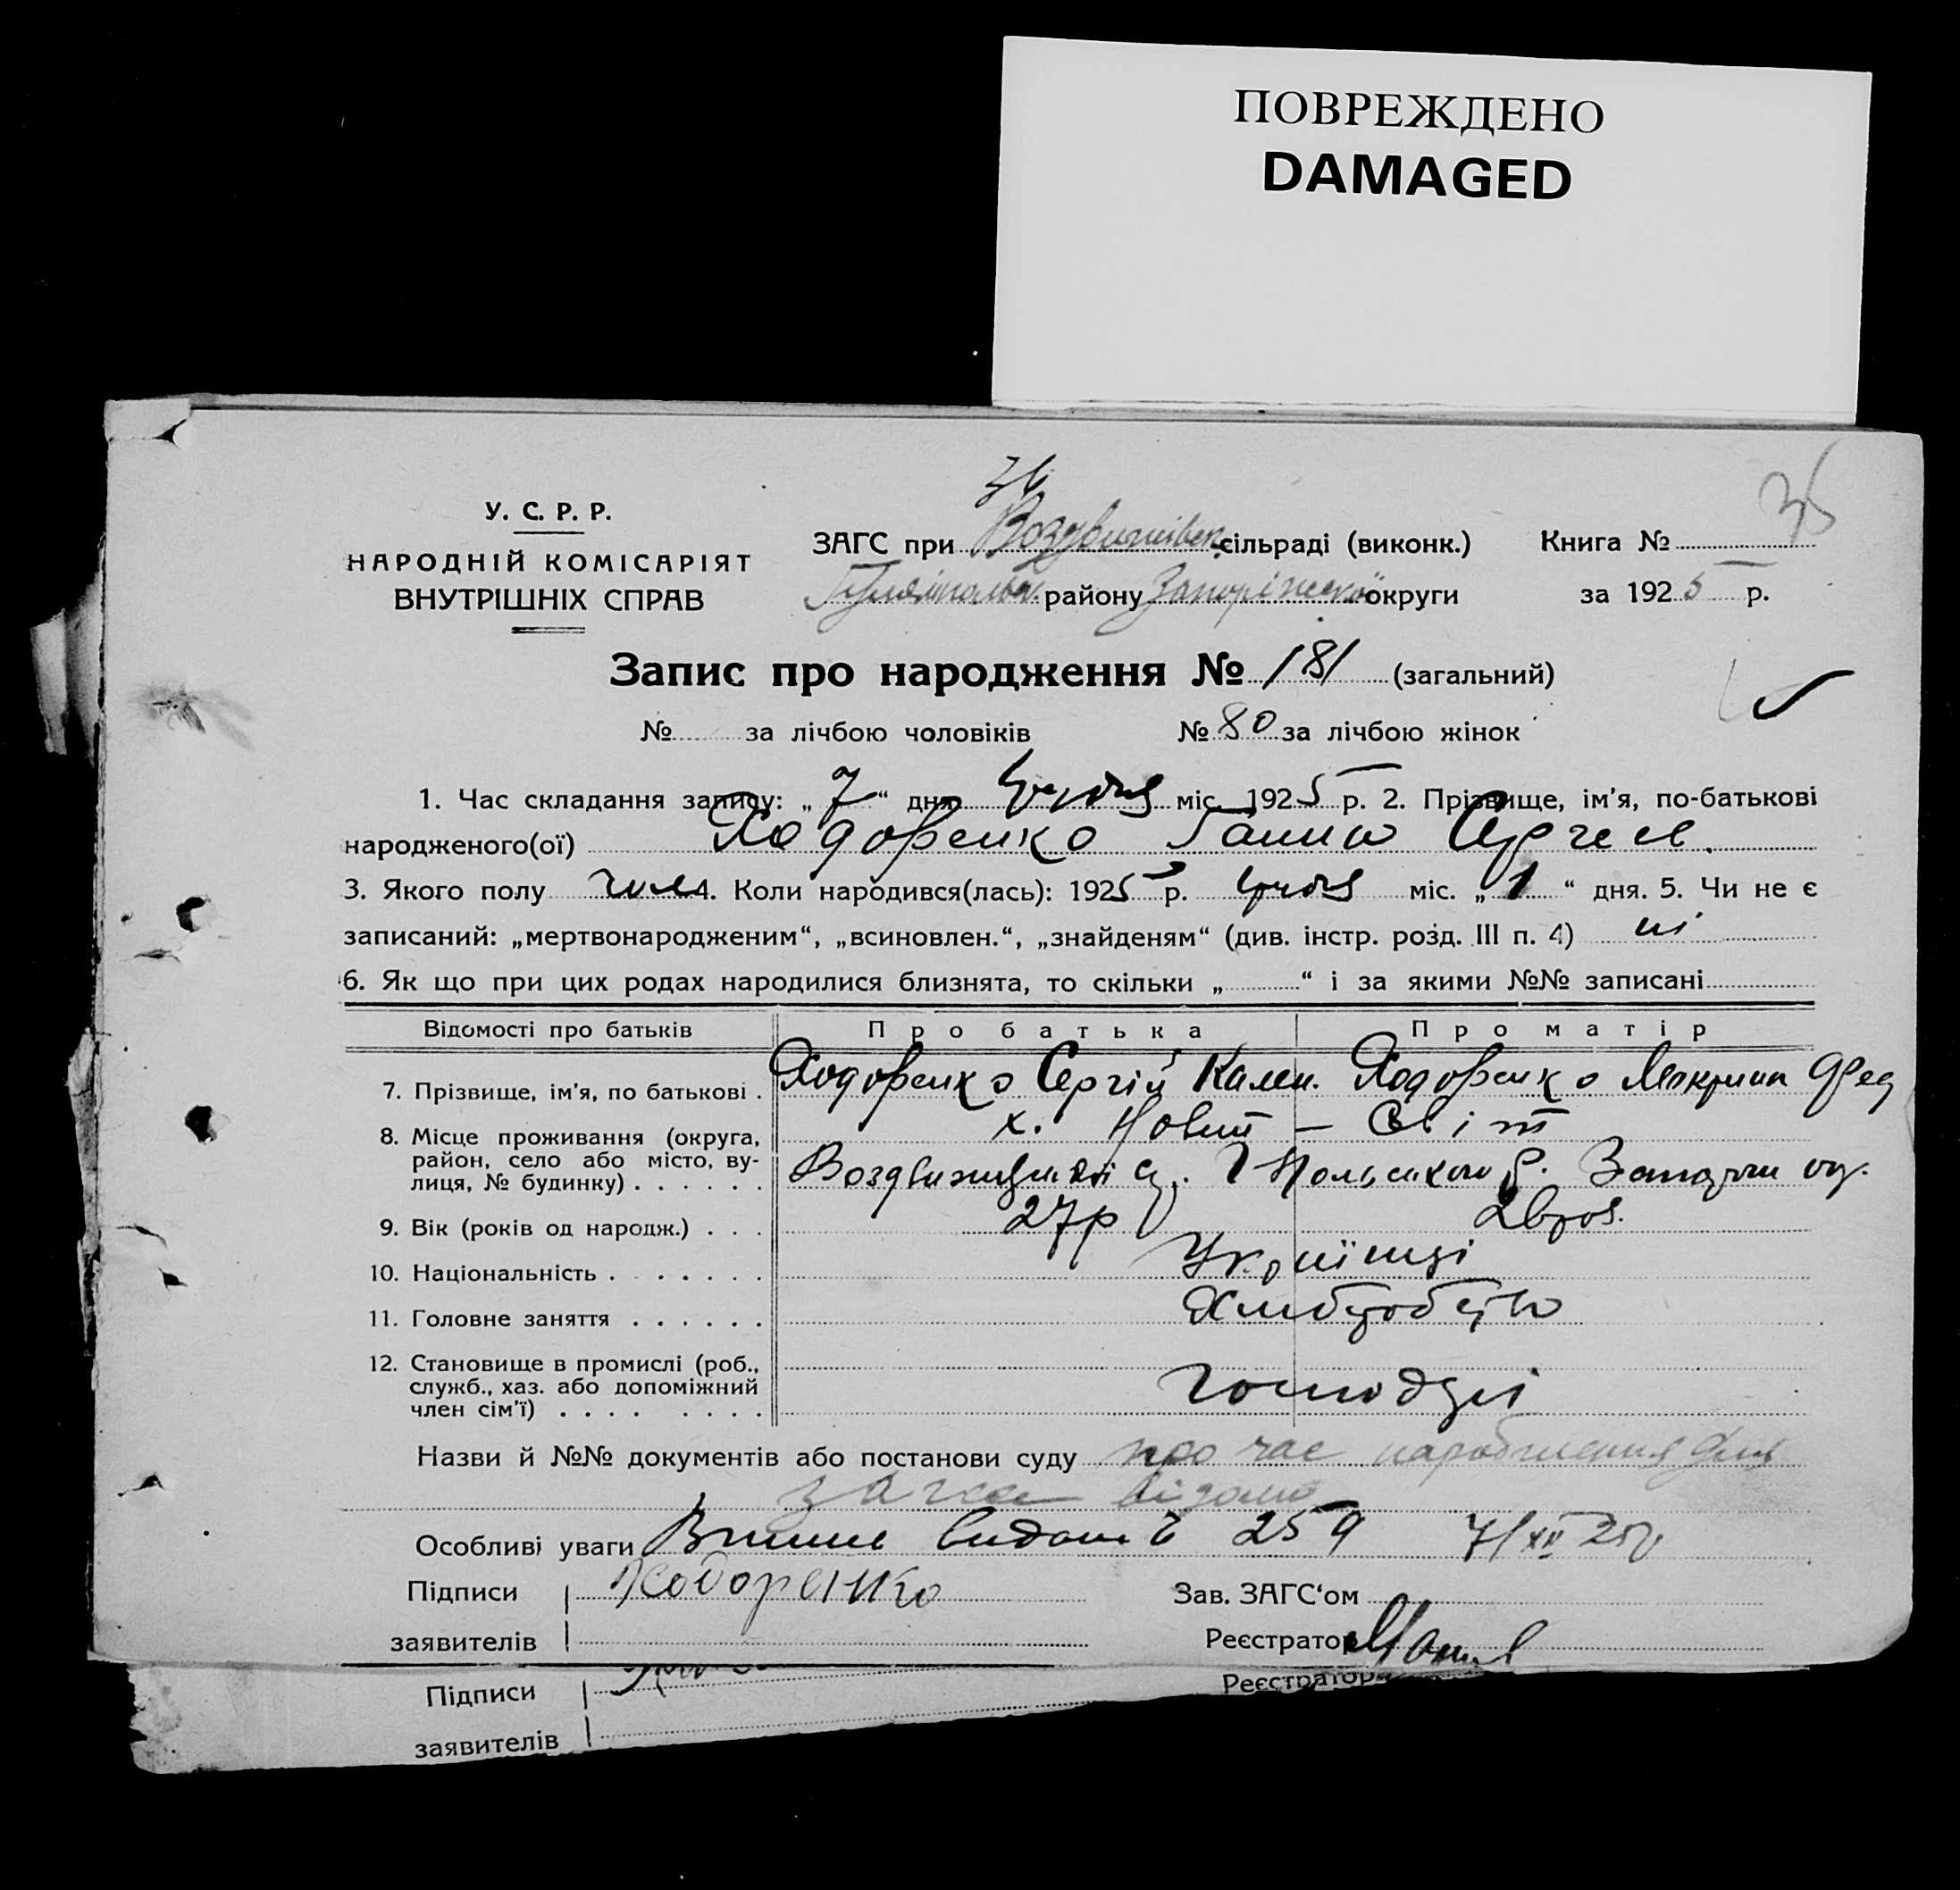 ПОВРЕЖДЕНО
DAMAGED
36
У. С. Р. Р.
НАРОДНІЙ КОМІСАРІЯТ
ВНУТРІШНІХ СПРАВ
ЗАГС при Воздвижівськ. сільраді (виконк.) Книга №
району Запоріжської округи за 1925 р.
Запис про народження № 181 (загальний)
№ за лічбою чоловіків № 80 за лічбою жінок
1. Час складання запису: „7“ дня грудня міс. 1925 р. 2. Прізвище, ім'я, по-батькові
народженого(ої) Ходоренко Ганна Сергеев.
3. Якого полу 4. Коли народився(лась): 1925 р. грудня міс. „1“ дня. 5. Чи не є
записаний: „мертвонародженим“, „всиновлен.“, „знайденям“ (див. інстр. розд. III п. 4) ні
6. Як що при цих родах народилися близнята, то скільки „ “ і за якими №№ записані
Відомості про батьків Про батька Про матір
7. Прізвище, ім'я, по батькові . Ходоренко Сергій Калем. Ходоренко Мокрина Фед
8. Місце проживання (округа, район, село або місто, вулиця, № будинку) . . . . . . х. Новий — Світ
р. Запор ок.
9. Вік (років од народж.) . . . 27р
10. Національність . . . . . . . Українці
11. Головне заняття . . . . . . Хліборобство
12. Становище в промислі (роб., служб., хаз. або допоміжний член сім'ї) . . . . . . . . Господарі
Назви й №№ документів або постанови суду про час народження
відомо
Особливі уваги видано 259 7/XII 25р.
Підписи Ходоренко Зав. ЗАГС'ом
заявителів Реєстратор
Підписи Реєстратор
заявителів